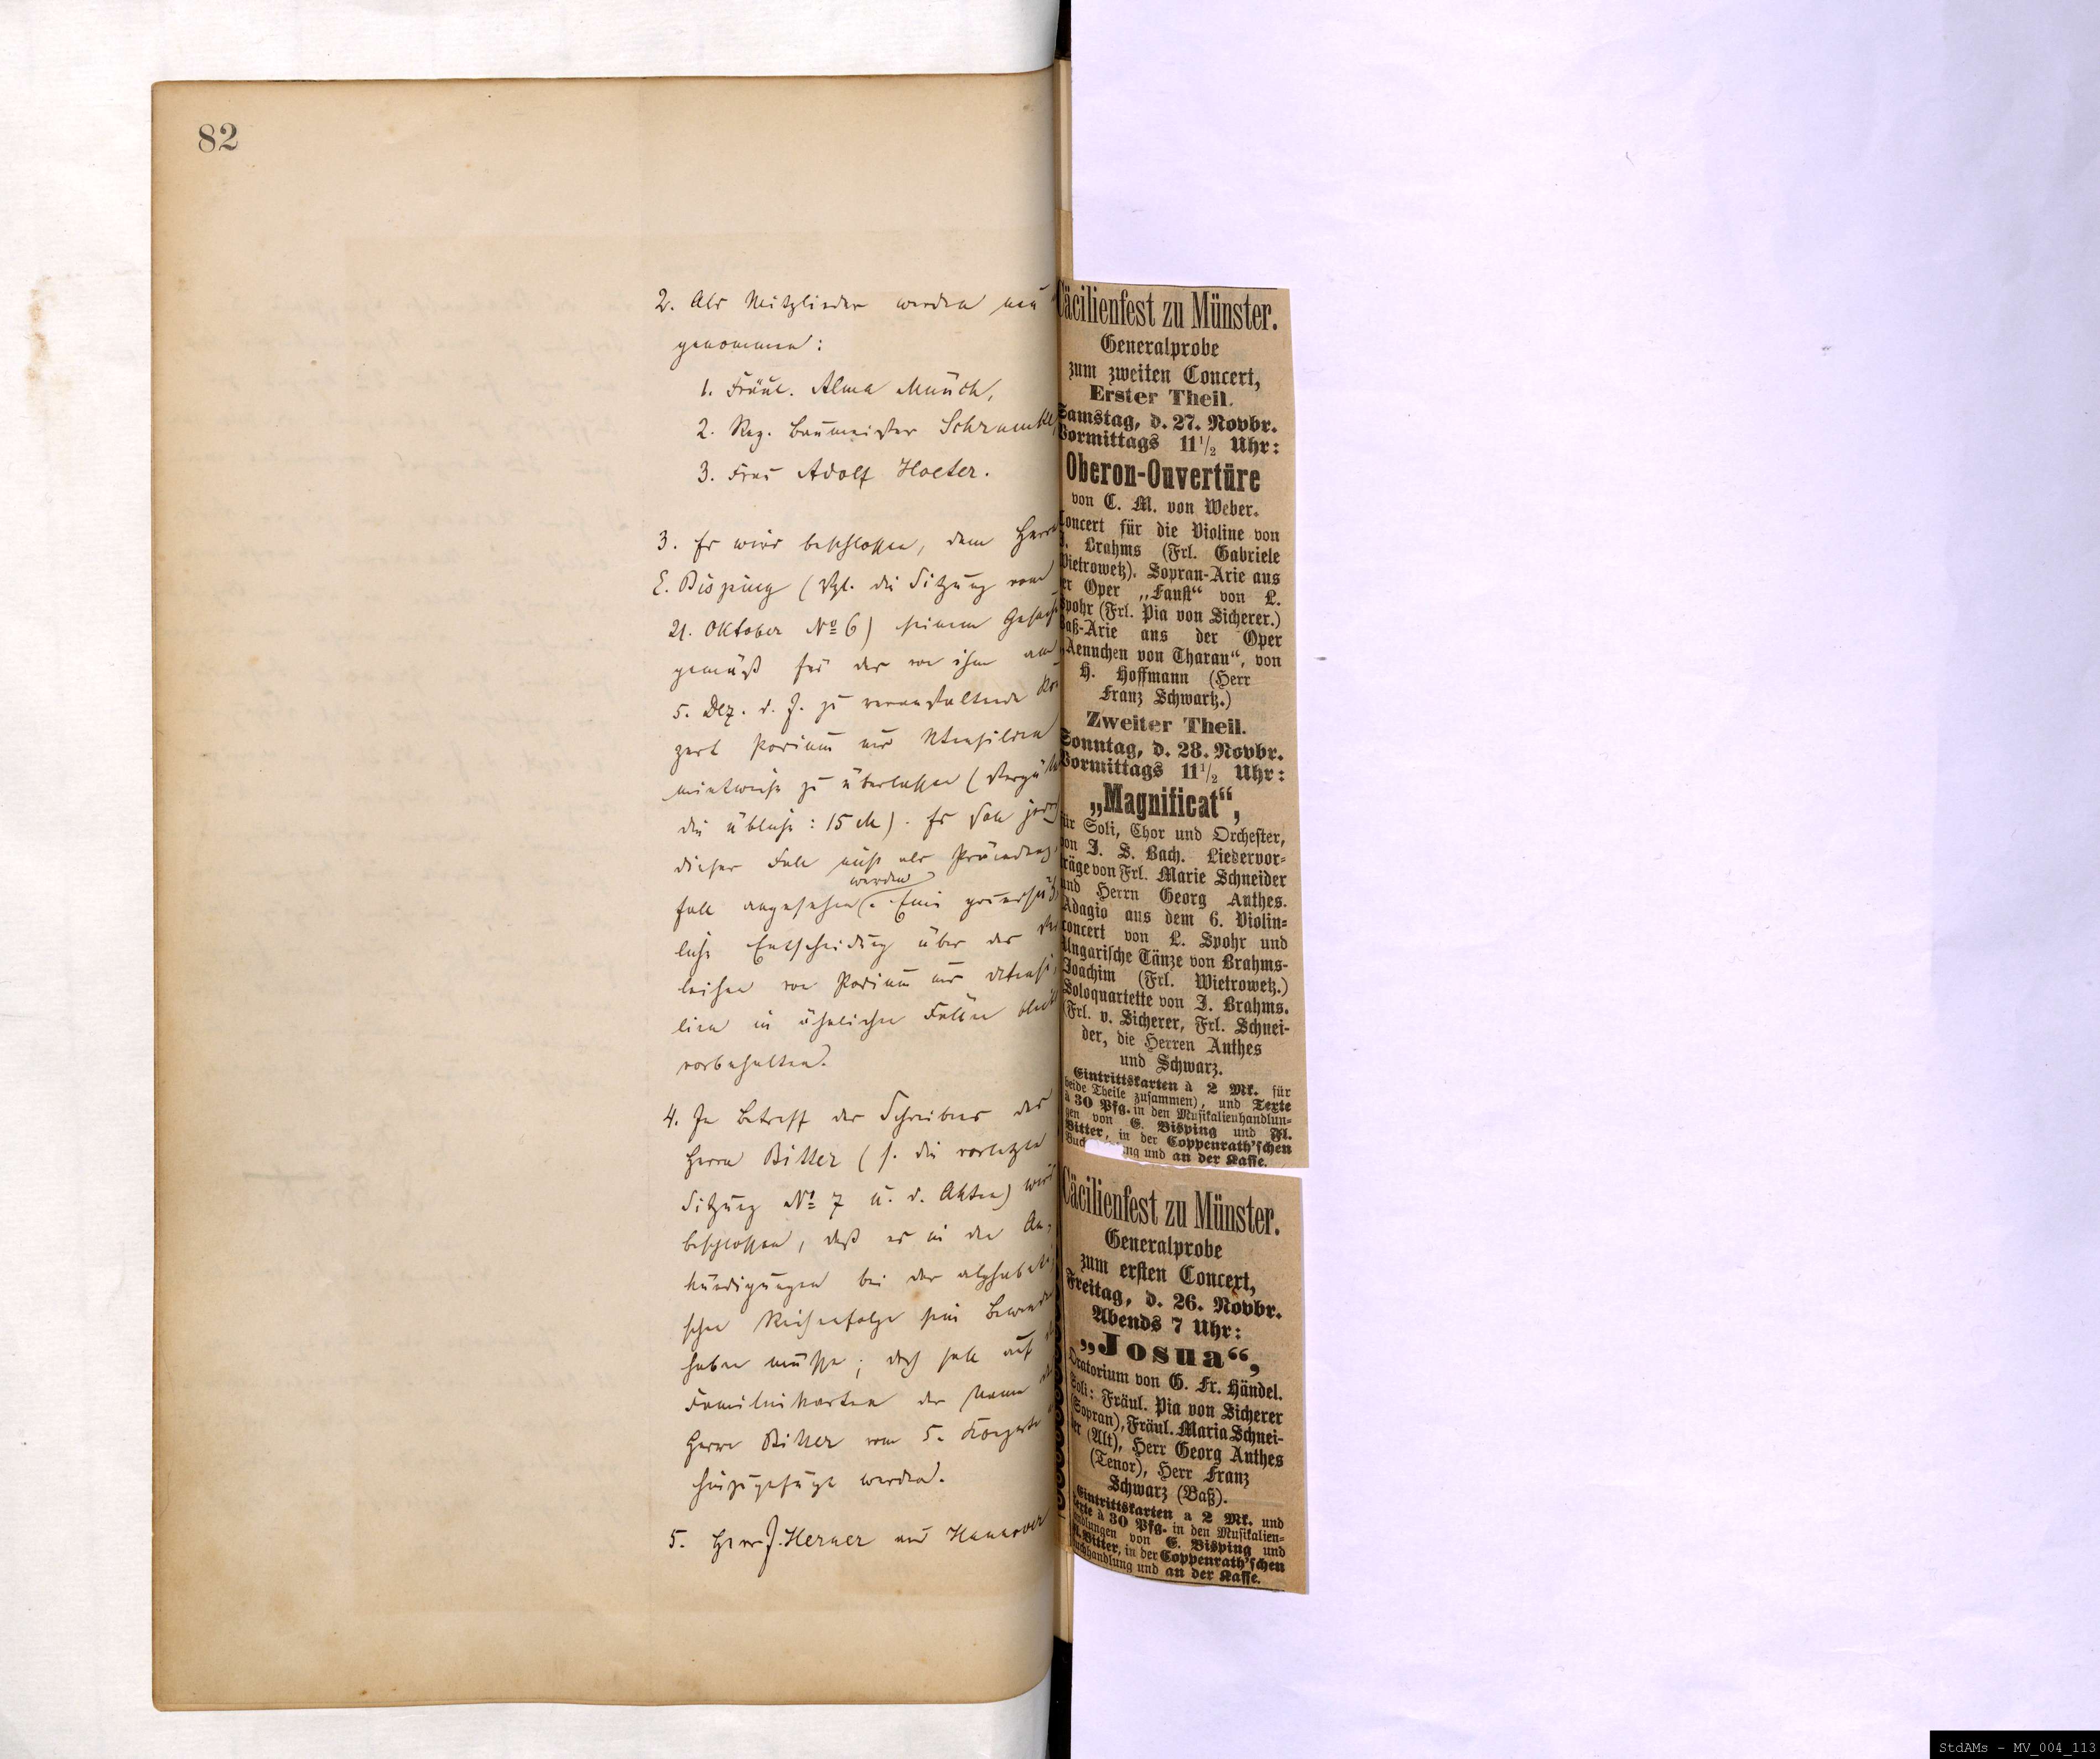 82
2. Als Mitglieder werden neu
genommen:
1. Fräul. Alma Münch,
2. Reg. Baumeister Schramke,
3. Frau Adolf Hoeter.
3. Es wird beschlossen, dem Herrn
E. Bisping (Vgl. die Sitzung vom
21. Oktober No 6) seinem Gesuch
gemäß für das von ihm am
5. Dez. d. J. zu veranstaltende Kon-
zert Podium und Utensilien
mietweise zu überlassen (Vergüt
die übliche: 15 M). Es soll jedoch
dieser Fall nicht als Präzedenz-
fall angesehen werden. Eine grundsätz-
liche Entscheidung über das Ver
leihen von Podium und Utensi-
lien in ähnlichen Fällen bleibt
vorbehalten.
4. In Betreff des Schreibens des
Herrn Bitter (s. die vorletzte
Sitzung No 7 u. d. Akten) wird
beschlossen, daß es in den An-
kündigungen bei der alphabeti-
schen Reihenfolge sein Bewenden
haben müsse; doch soll auf
Familienkarten der Name
Herrn Bitter vom 5. Konzerte
hinzugefügt werden.
5. Herr J. Herner aus Hannover
Cäcilienfest zu Münster.
Generalprobe
zum zweiten Concert,
Erster Theil.
Samstag, d. 27. Novbr.
Vormittags 11½ Uhr:
Oberon-Ouvertüre
von C. M. von Weber.
Concert für die Violine von
J. Brahms (Frl. Gabriele
Wietrowetz). Sopran-Arie aus
der Oper „Faust“ von L.
Spohr (Frl. Pia von Sicherer.)
Baß-Arie aus der Oper
„Aennchen von Tharau“, von
H. Hoffmann (Herr
Franz Schwartz.)
Zweiter Theil.
Sonntag, d. 28. Novbr.
Vormittags 11½ Uhr:
„Magnificat“,
für Soli, Chor und Orchester,
von J. S. Bach. Liedervor-
träge von Frl. Marie Schneider
und Herrn Georg Anthes.
Adagio aus dem 6. Violin-
concert von L. Spohr und
Ungarische Tänze von Brahms-
Joachim (Frl. Wietrowetz.)
Soloquartette von J. Brahms.
(Frl. v. Sicherer, Frl. Schnei-
der, die Herren Anthes
und Schwarz.
Eintrittskarten à 2 Mk. für
beide Theile zusammen), und Texte
à 30 Pfg. in den Musikalienhandlun-
gen von E. Bisping und Fl.
Bitter, in der Coppenrath'schen
Buch ng und an der Kasse.
Cäcilienfest zu Münster.
Generalprobe
zum ersten Concert,
Freitag, d. 26. Novbr.
Abends 7 Uhr:
„Josua“,
Oratorium von G. Fr. Händel.
Soli: Fräul. Pia von Sicherer
(Sopran), Fräul. Maria Schnei-
der (Alt), Herr Georg Anthes
(Tenor), Herr Franz
Schwarz (Baß).
Eintrittskarten a 2 Mk. und
Texte à 30 Pfg. in den Musikalien-
handlungen von E. Bisping und
Fl. Bitter, in der Coppenrath'schen
Buchhandlung und an der Kasse.
StdAMs - MV_004_113